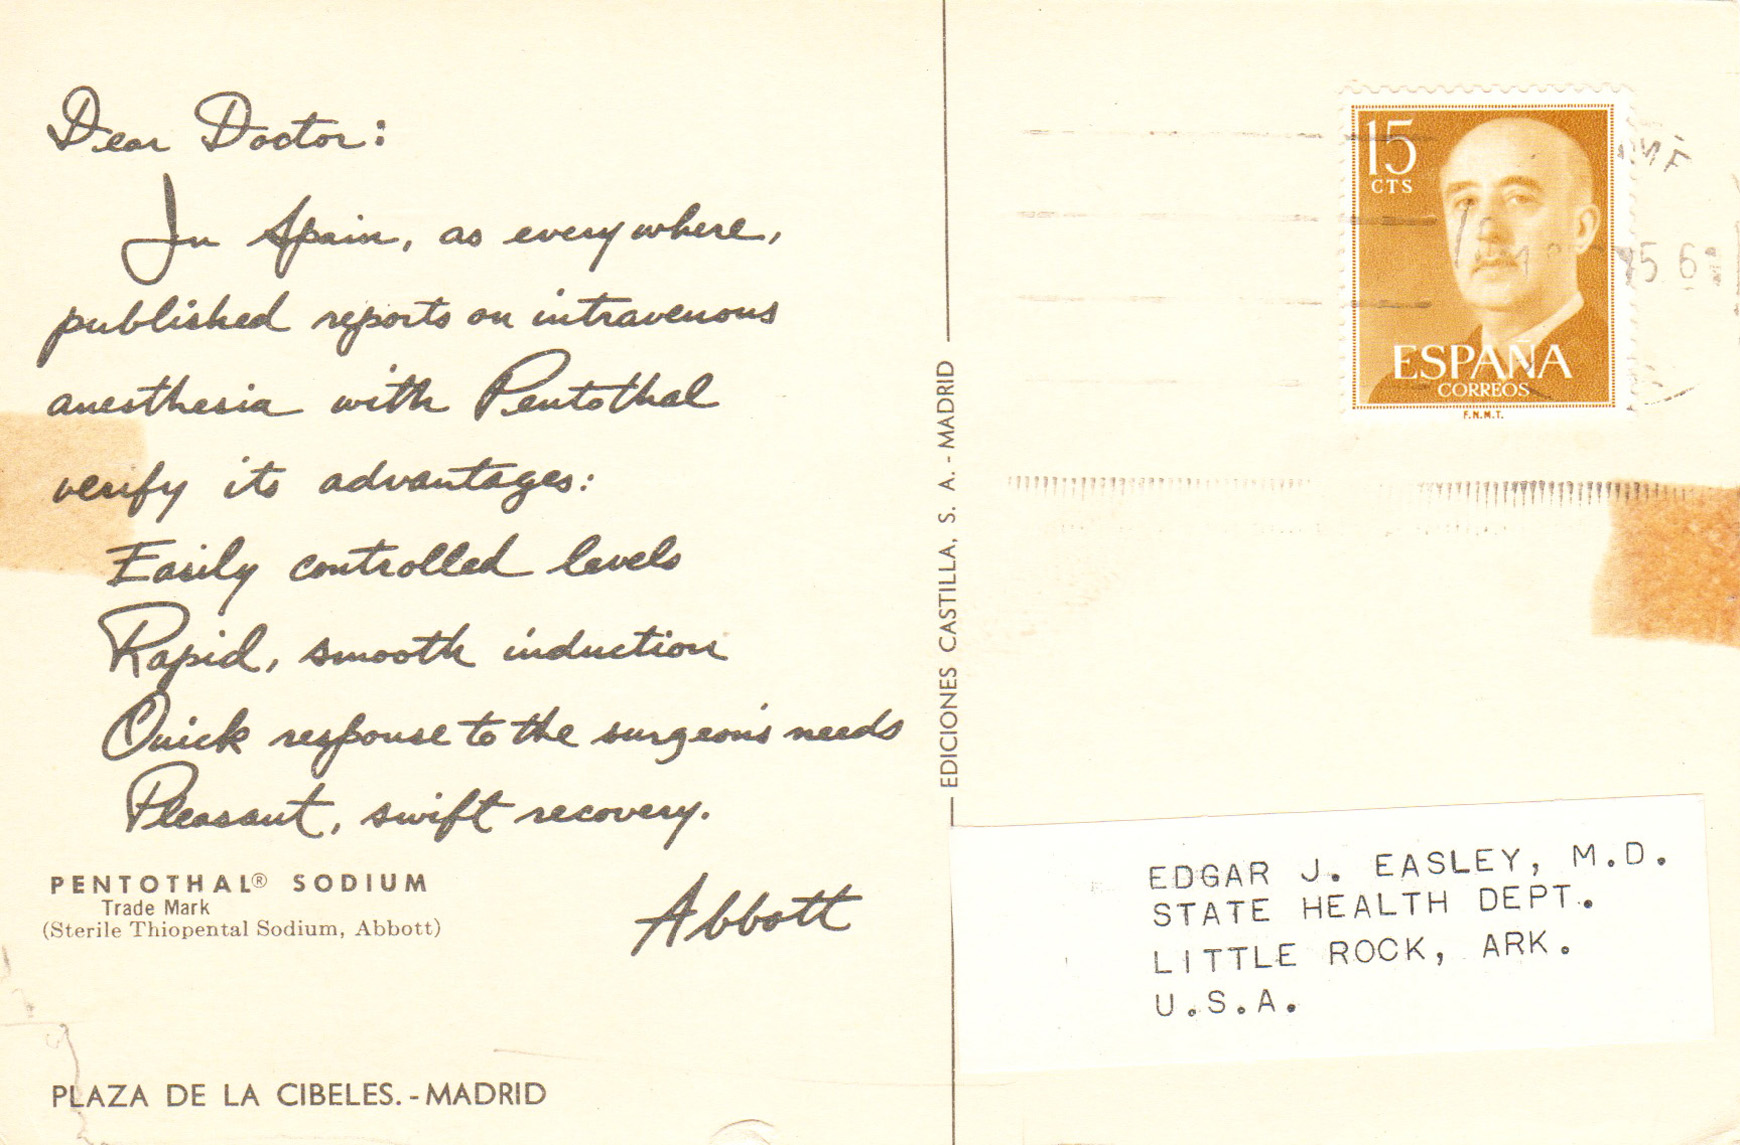 Dear Doctor:
In Spain, as everywhere,
published reports on intravenous
anesthesia with Pentothal
verify its advantages:
Easily controlled levels
Rapid, smooth induction
Quick response to the surgeon's needs
Pleasant, swift recovery.
Abbott
PENTOTHAL® SODIUM
Trade Mark
(Sterile Thiopental Sodium, Abbott)
PLAZA DE LA CIBELES.-MADRID
EDICIONES CASTILLA, S. A. - MADRID
15
CTS
ESPAÑA
CORREOS
F.N.M.T.
EDGAR J. EASLEY, M.D.
STATE HEALTH DEPT.
LITTLE ROCK, ARK.
U.S.A.